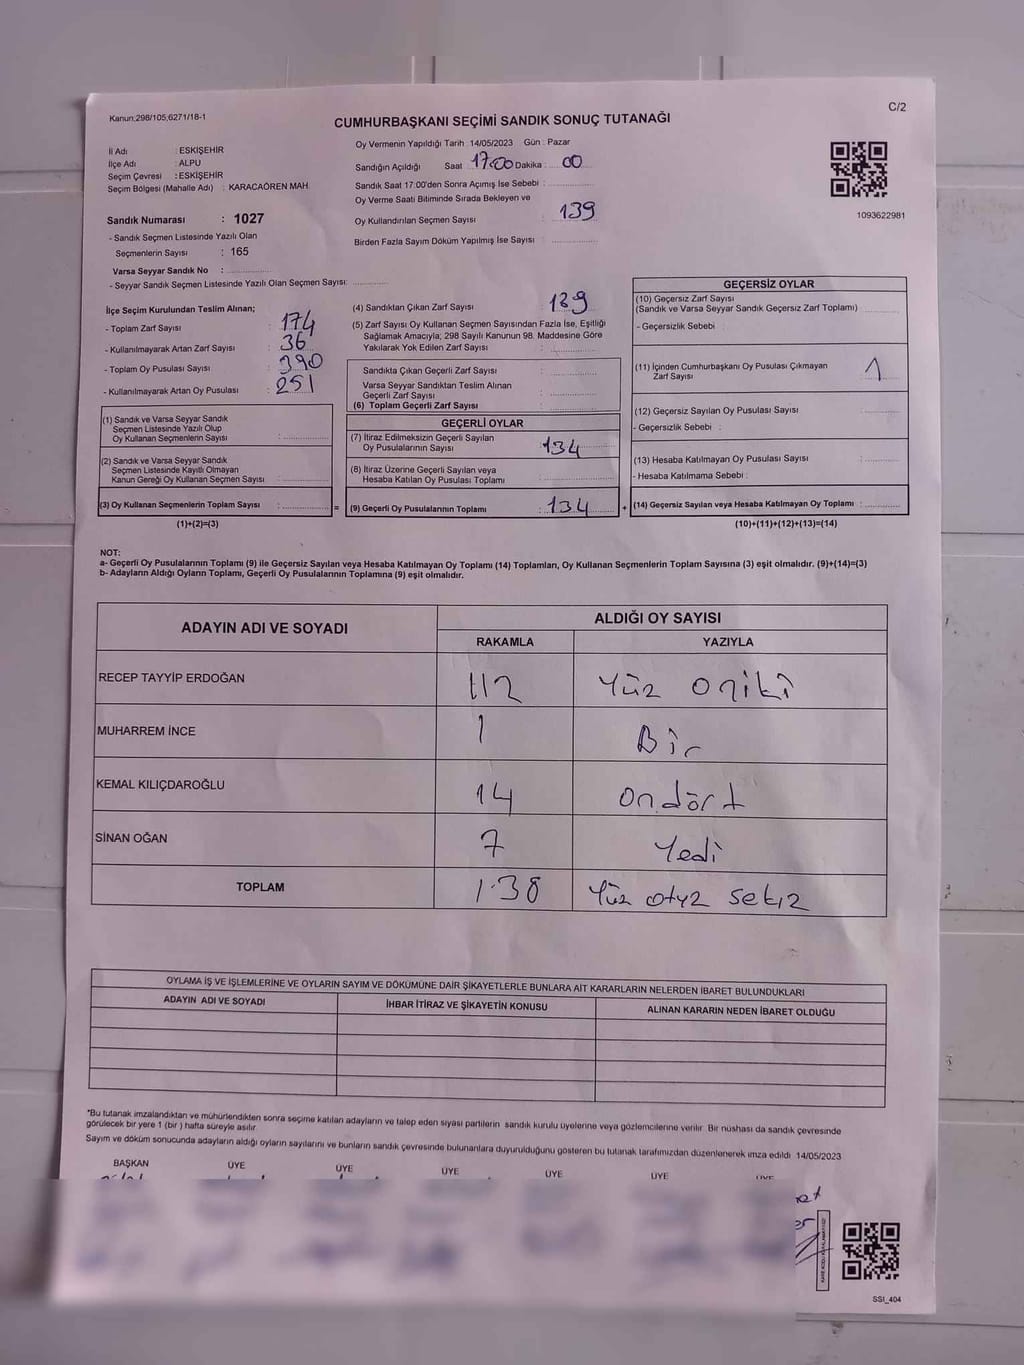 Kanun;298/105,6271/18-1
C/2
CUMHURBAŞKANI SEÇİMİ SANDIK SONUÇ TUTANAĞI
İl Adı : ESKİŞEHİR
İlçe Adı : ALPU
Seçim Çevresi : ESKİŞEHİR
Seçim Bölgesi (Mahalle Adı) : KARACAÖREN MAH.
Oy Vermenin Yapıldığı Tarih :14/05/2023 Gün : Pazar
Sandığın Açıldığı Saat : 17:00 Dakika : 00
Sandık Saat 17:00'den Sonra Açımış İse Sebebi :
Oy Verme Saati Bitiminde Sırada Bekleyen ve
Oy Kullandırılan Seçmen Sayısı : 139
Birden Fazla Sayım Döküm Yapılmış İse Sayısı :
1093622981
Sandık Numarası : 1027
- Sandık Seçmen Listesinde Yazılı Olan
Seçmenlerin Sayısı : 165
Varsa Seyyar Sandık No :
- Seyyar Sandık Seçmen Listesinde Yazılı Olan Seçmen Sayısı:
İlçe Seçim Kurulundan Teslim Alınan;
- Toplam Zarf Sayısı : 174
- Kullanılmayarak Artan Zarf Sayısı : 36
- Toplam Oy Pusulası Sayısı : 390
- Kullanılmayarak Artan Oy Pusulası : 251
(1) Sandık ve Varsa Seyyar Sandık
Seçmen Listesinde Yazılı Olup
Oy Kullanan Seçmenlerin Sayısı :
(2) Sandık ve Varsa Seyyar Sandık
Seçmen Listesinde Kayıtlı Olmayan
Kanun Gereği Oy Kullanan Seçmen Sayısı :
(3) Oy Kullanan Seçmenlerin Toplam Sayısı : =
(1)+(2)=(3)
(4) Sandıktan Çıkan Zarf Sayısı : 139
(5) Zarf Sayısı Oy Kullanan Seçmen Sayısından Fazla İse, Eşitliği
Sağlamak Amacıyla; 298 Sayılı Kanunun 98. Maddesine Göre
Yakılarak Yok Edilen Zarf Sayısı :
Sandıkta Çıkan Geçerli Zarf Sayısı :
Varsa Seyyar Sandıktan Teslim Alınan
Geçerli Zarf Sayısı :
(6) Toplam Geçerli Zarf Sayısı :
GEÇERLİ OYLAR
(7) İtiraz Edilmeksizin Geçerli Sayılan
Oy Pusulalarının Sayısı : 134
(8) İtiraz Üzerine Geçerli Sayılan veya
Hesaba Katılan Oy Pusulası Toplamı :
(9) Geçerli Oy Pusulalarının Toplamı : 134 +
GEÇERSİZ OYLAR
(10) Geçersiz Zarf Sayısı
(Sandık ve Varsa Seyyar Sandık Geçersiz Zarf Toplamı) :
- Geçersizlik Sebebi :
(11) İçinden Cumhurbaşkanı Oy Pusulası Çıkmayan
Zarf Sayısı : 1
(12) Geçersiz Sayılan Oy Pusulası Sayısı :
- Geçersizlik Sebebi :
(13) Hesaba Katılmayan Oy Pusulası Sayısı :
- Hesaba Katılmama Sebebi :
(14) Geçersiz Sayılan veya Hesaba Katılmayan Oy Toplamı :
(10)+(11)+(12)+(13)=(14)
NOT:
a- Geçerli Oy Pusulalarının Toplamı (9) ile Geçersiz Sayılan veya Hesaba Katılmayan Oy Toplamı (14) Toplamları, Oy Kullanan Seçmenlerin Toplam Sayısına (3) eşit olmalıdır. (9)+(14)=(3)
b- Adayların Aldığı Oyların Toplamı, Geçerli Oy Pusulalarının Toplamına (9) eşit olmalıdır.
ADAYIN ADI VE SOYADI
ALDIĞI OY SAYISI
RAKAMLA YAZIYLA
RECEP TAYYİP ERDOĞAN 112 Yüz oniki
MUHARREM İNCE 1 Bir
KEMAL KILIÇDAROĞLU 14 ondört
SİNAN OĞAN 7 Yedi
TOPLAM 138 Yüz otuz sekiz
OYLAMA İŞ VE İŞLEMLERİNE VE OYLARIN SAYIM VE DÖKÜMÜNE DAİR ŞİKAYETLERLE BUNLARA AİT KARARLARIN NELERDEN İBARET BULUNDUKLARI
ADAYIN ADI VE SOYADI İHBAR İTİRAZ VE ŞİKAYETİN KONUSU ALINAN KARARIN NEDEN İBARET OLDUĞU
*Bu tutanak imzalandıktan ve mühürlendikten sonra seçime katılan adayların ve talep eden siyasi partilerin sandık kurulu üyelerine veya gözlemcilerine verilir. Bir nüshası da sandık çevresinde
görülecek bir yere 1 (bir) hafta süreyle asılır.
Sayım ve döküm sonucunda adayların aldığı oyların sayılarını ve bunların sandık çevresinde bulunanlara duyurulduğunu gösteren bu tutanak tarafımızdan düzenlenerek imza edildi. 14/05/2023
BAŞKAN ÜYE ÜYE ÜYE ÜYE ÜYE ÜYE
SSI_404